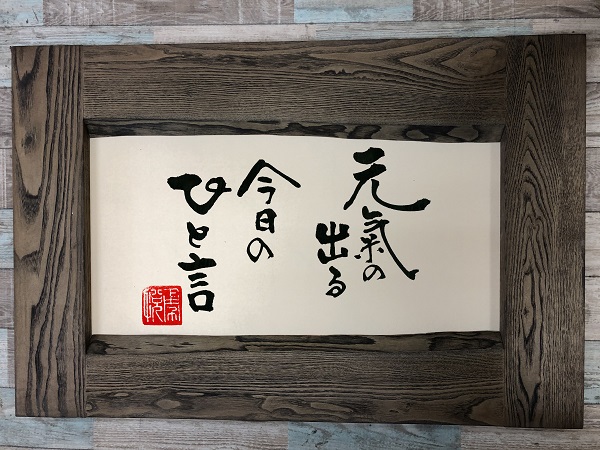 元氣の
出る
今日の
ひと言